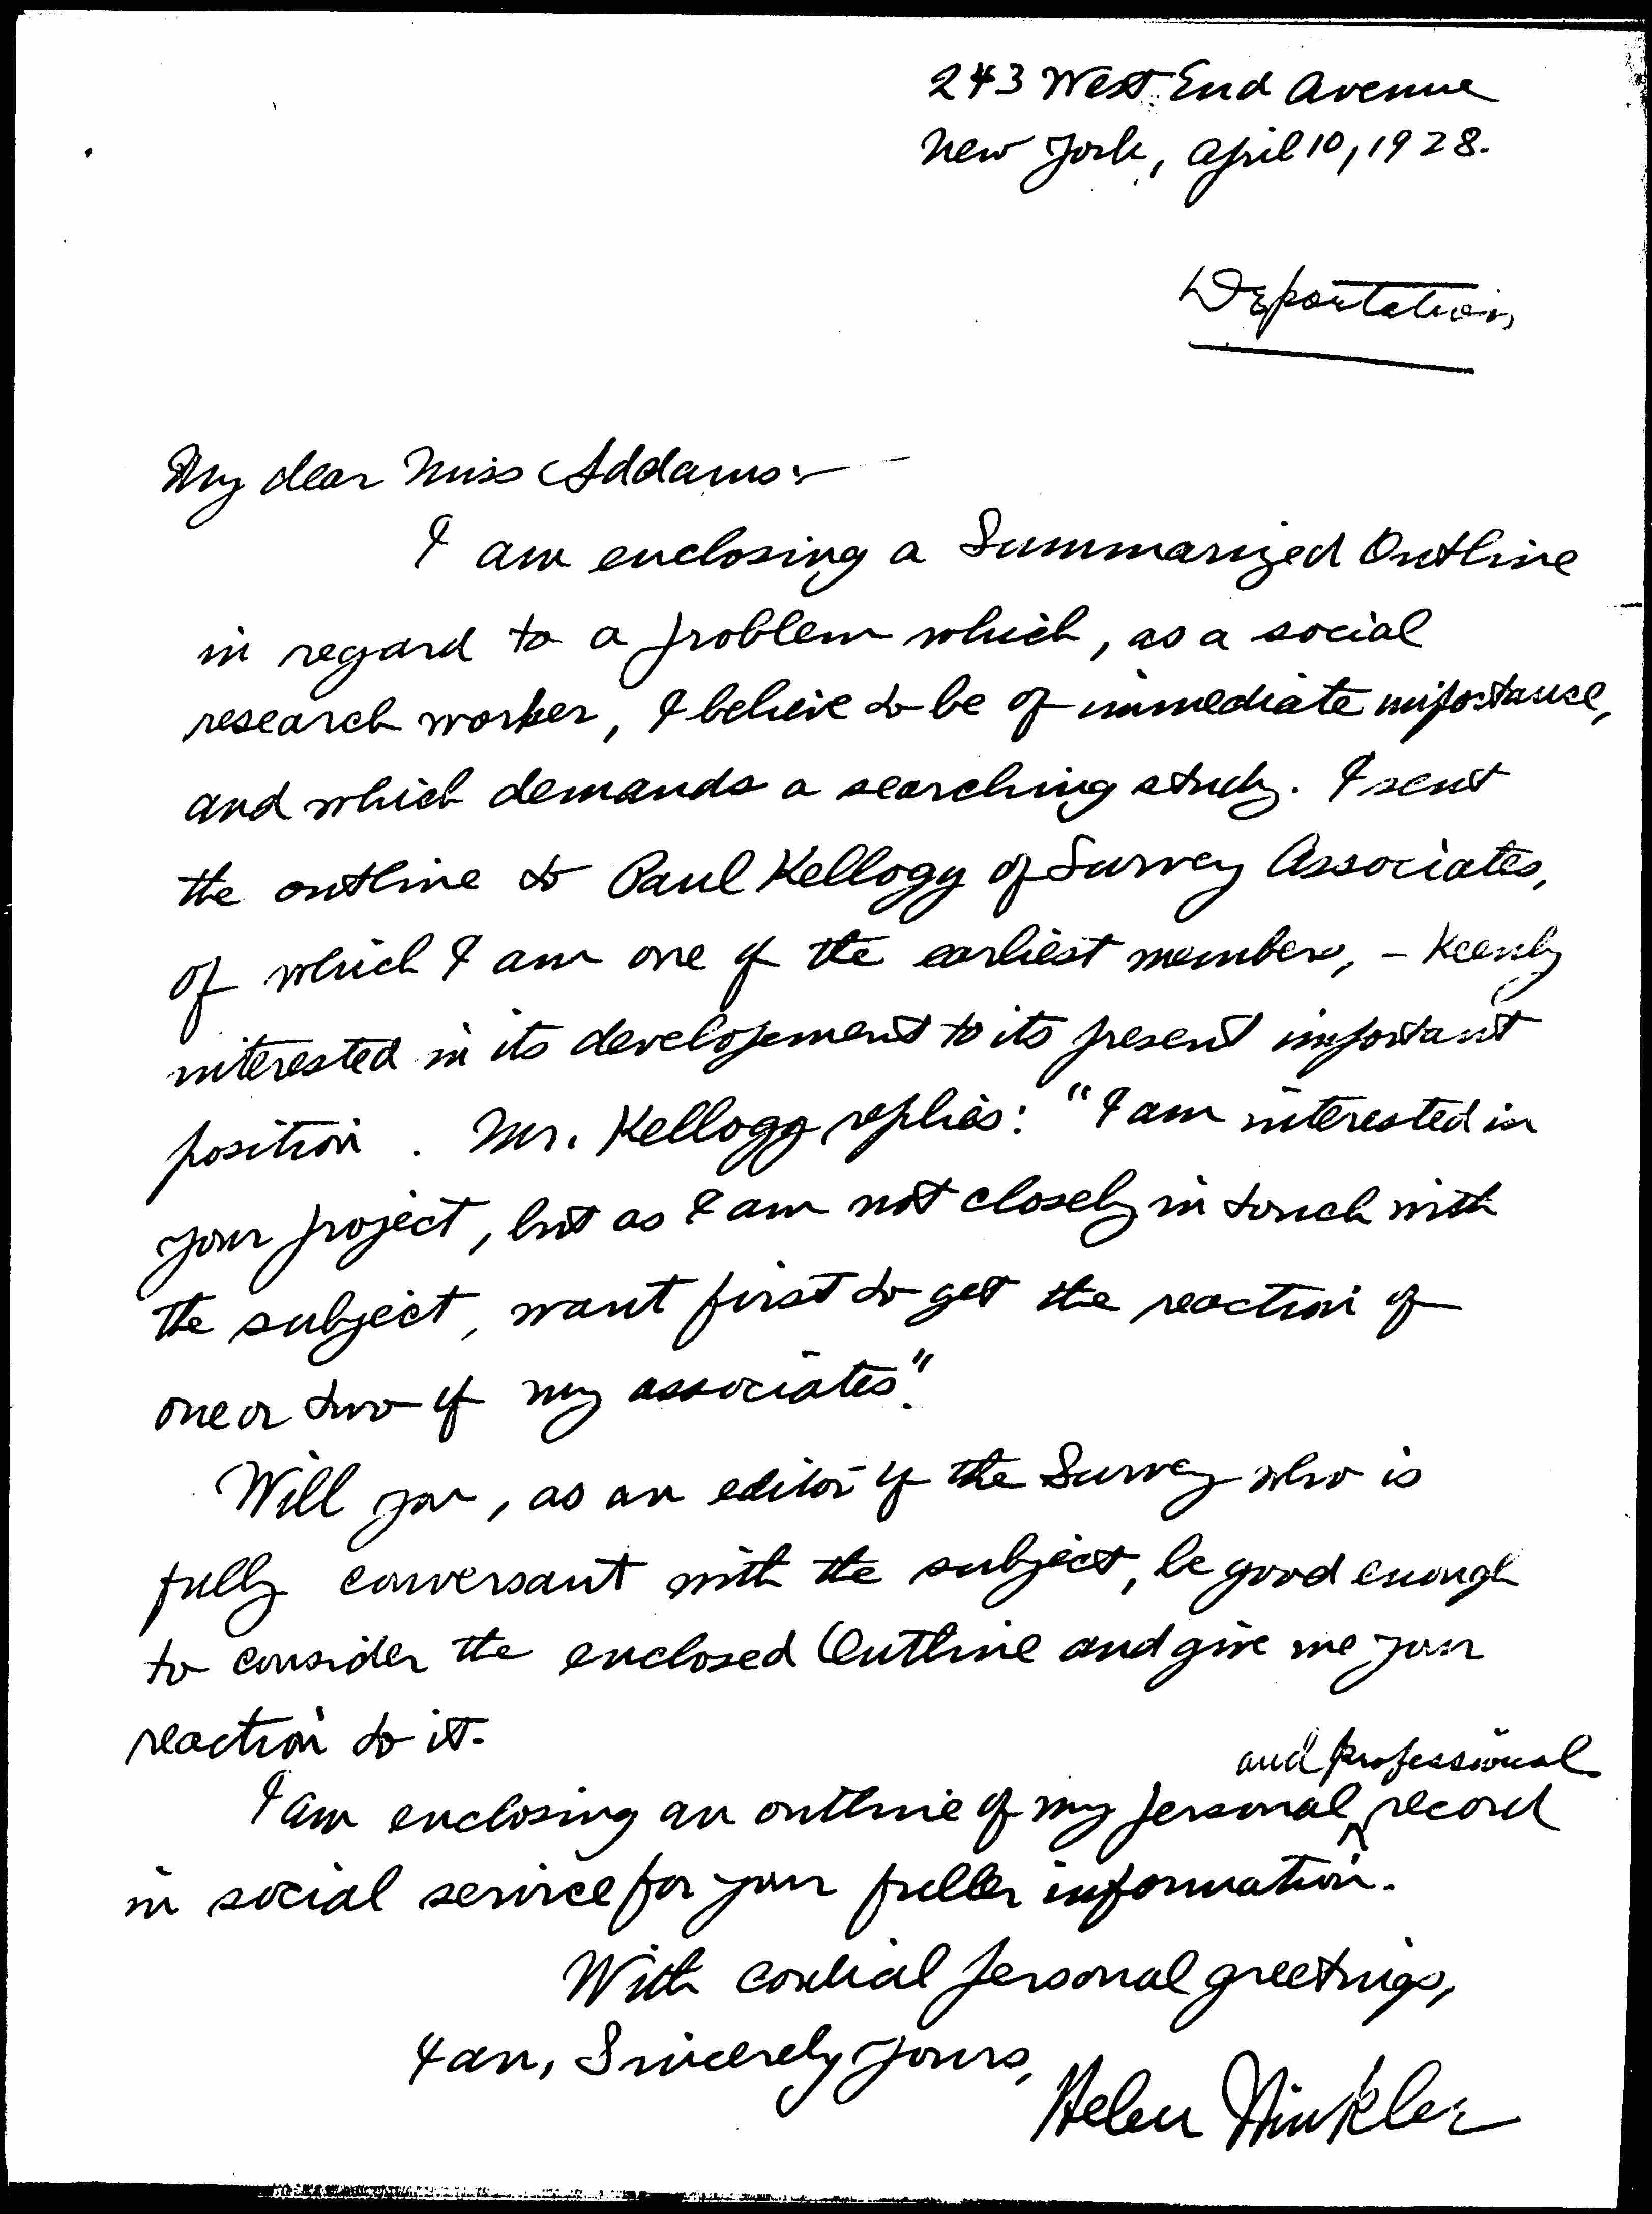 243 West End Avenue
New York, April 10, 1928.
Deportation
My dear Miss Addams:—
I am enclosing a Summarized Outline
in regard to a problem which, as a social
research worker, I believe to be of immediate importance,
and which demands a searching study. I sent
the outline to Paul Kellogg of Survey Associates,
of which I am one of the earliest members, – keenly
interested in its developement to its present important
position. Mr. Kellogg replies: "I am interested in
your project, but as I am not closely in touch with
the subject, want first to get the reaction of
one or two of my associates".
Will you, as an editor of the Survey who is
fully conversant with the subject, be good enough
to consider the enclosed Outline and give me your
reaction to it.
I am enclosing an outline of my personal and professional record
in social service for your fuller information.
With cordial personal greetings,
I am, Sincerely yours,
Helen Winkler